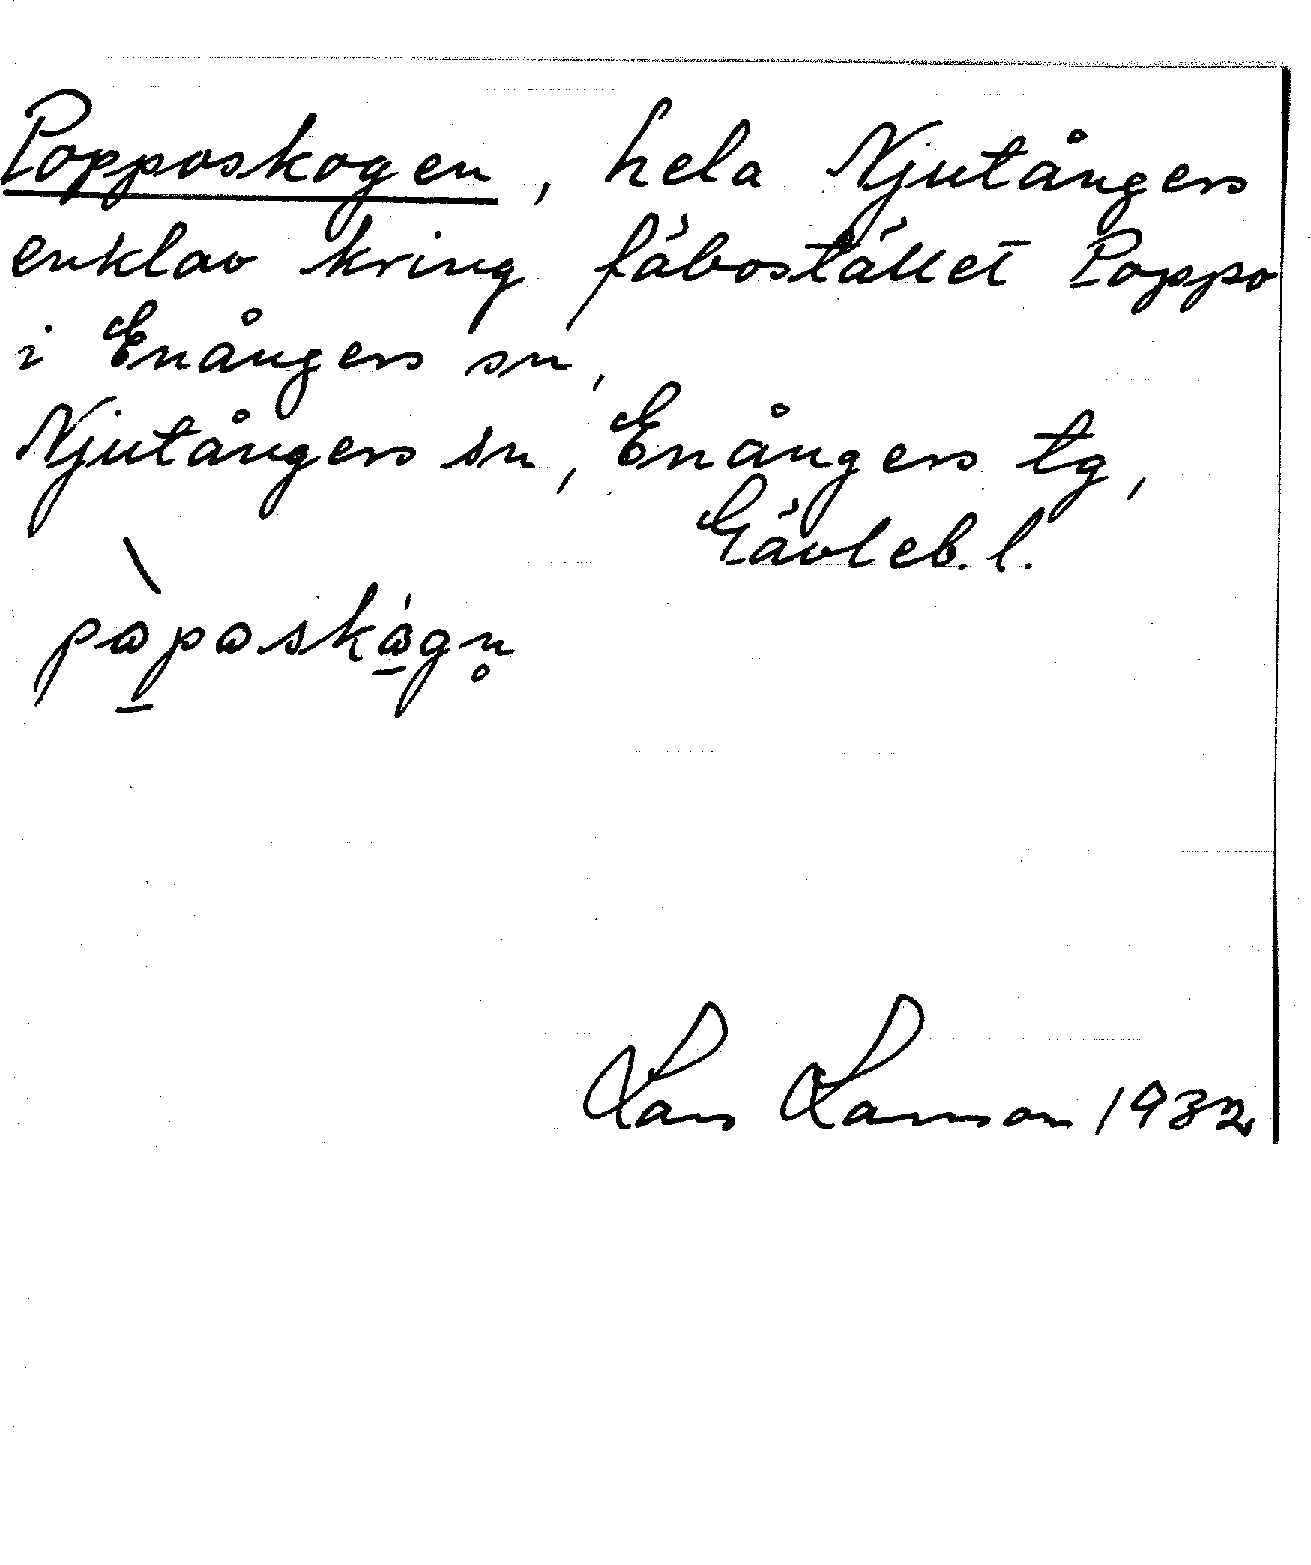 Opposkogen, hela Njutångers
enklav kring fäbostället Poppo
i Enångers sn,
Njutångers sn, Enångers tg,
Gävleb. l.
Lars Larsson 1932